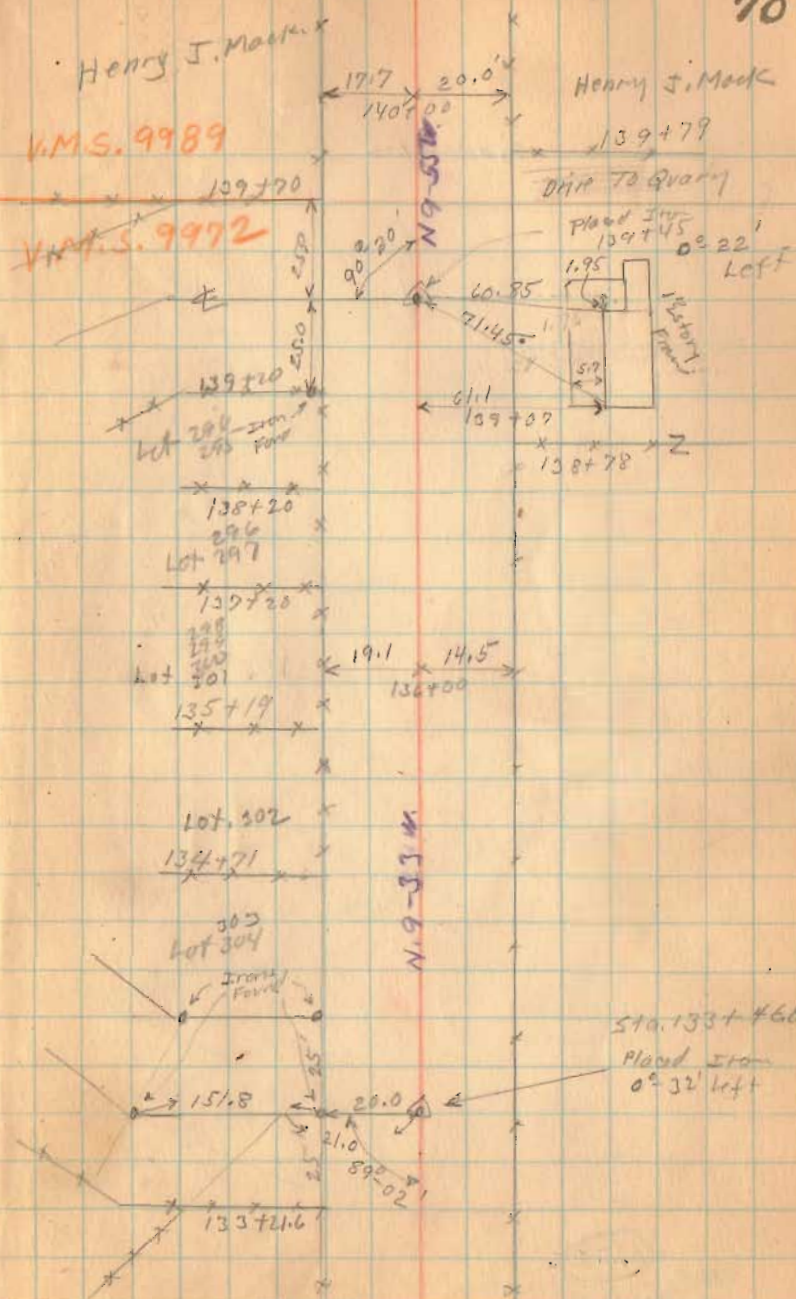 70
Henry J. Mack.
17.7 20.0'
140+00
Henry J. Mack
V.M.S. 9989
139+79
139+70
Drive To Quarry
V.M.S. 9972
Placed Iron
139+45
0°-22'
Left
25.0
1.95
60.85
71.45
25.0
Frame
5.7
139+20
61.1
139+07
Iron
Lot 295
138+78
138+20
296
Lot 297
137+20
298
Lot 301
19.1 14.5
136+00
135+19
Lot. 302
134+71
N.9-33 W.
303
Lot 304
Irons
Found
Sta. 133+
Placed Iron
0°-32' Left
25'
151.8
20.0
21.0
89°-02'
25'
133+21.6